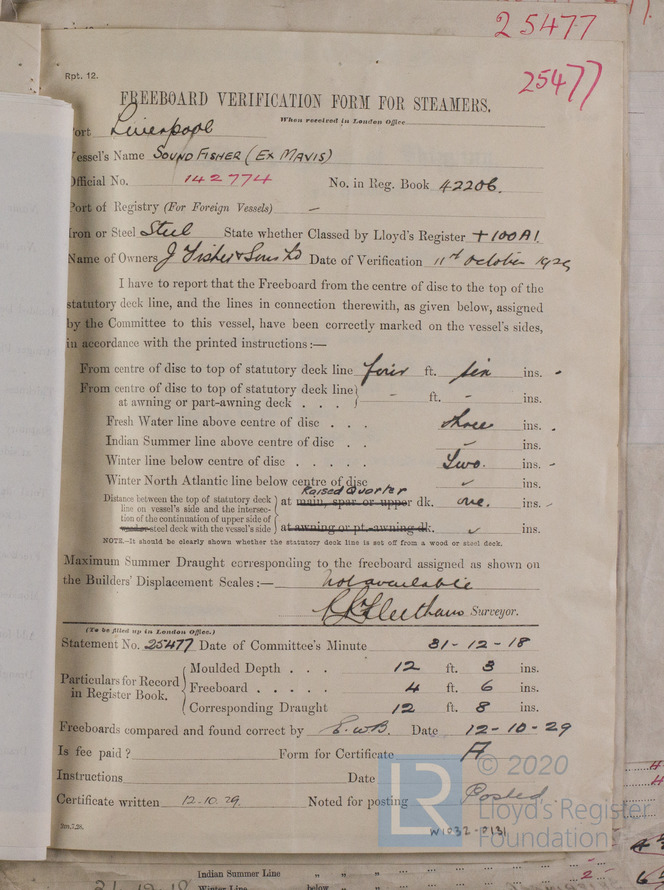 25477
25477
Rpt. 12.
FREEBOARD VERIFICATION FORM FOR STEAMERS.
When received in London Office
Port Liverpool
Vessel's Name SOUND FISHER (EX MAVIS)
Official No. 142774 No. in Reg. Book 42206.
Port of Registry (For Foreign Vessels) –
Iron or Steel Steel State whether Classed by Lloyd's Register +100A1.
Name of Owners J Fisher & Sons Ld Date of Verification 11th October 1929
I have to report that the Freeboard from the centre of disc to the top of the
statutory deck line, and the lines in connection therewith, as given below, assigned
by the Committee to this vessel, have been correctly marked on the vessel's sides,
in accordance with the printed instructions:—
From centre of disc to top of statutory deck line four ft. six ins.
From centre of disc to top of statutory deck line
at awning or part-awning deck . . . – ft. – ins.
Fresh Water line above centre of disc . . . three ins.
Indian Summer line above centre of disc . . – ins.
Winter line below centre of disc . . . . . Two. ins.
Winter North Atlantic line below centre of disc ins.
Raised Quarter
Distance between the top of statutory deck
line on vessel's side and the intersec- at main, spar or upper dk. one. ins.
tion of the continuation of upper side of
wood or steel deck with the vessel's side at awning or pt.-awning dk. ins.
NOTE.–It should be clearly shown whether the statutory deck line is set off from a wood or steel deck.
Maximum Summer Draught corresponding to the freeboard assigned as shown on
the Builders' Displacement Scales:— not available
Surveyor.
(To be filled up in London Office.)
Statement No. 25477 Date of Committee's Minute 31-12-18
Particulars for Record in Register Book.
Moulded Depth . . . 12 ft. 3 ins.
Freeboard . . . . . 4 ft. 6 ins.
Corresponding Draught 12 ft. 8 ins.
Freeboards compared and found correct by E.W.B. Date 12-10-29
Is fee paid? Form for Certificate A
Instructions Date
Certificate written 12.10.29. Noted for posting Posted
2m,7,28.
W1032-0131
LR
© 2020
Lloyd's Register
Foundation
Indian Summer Line
Winter Line below